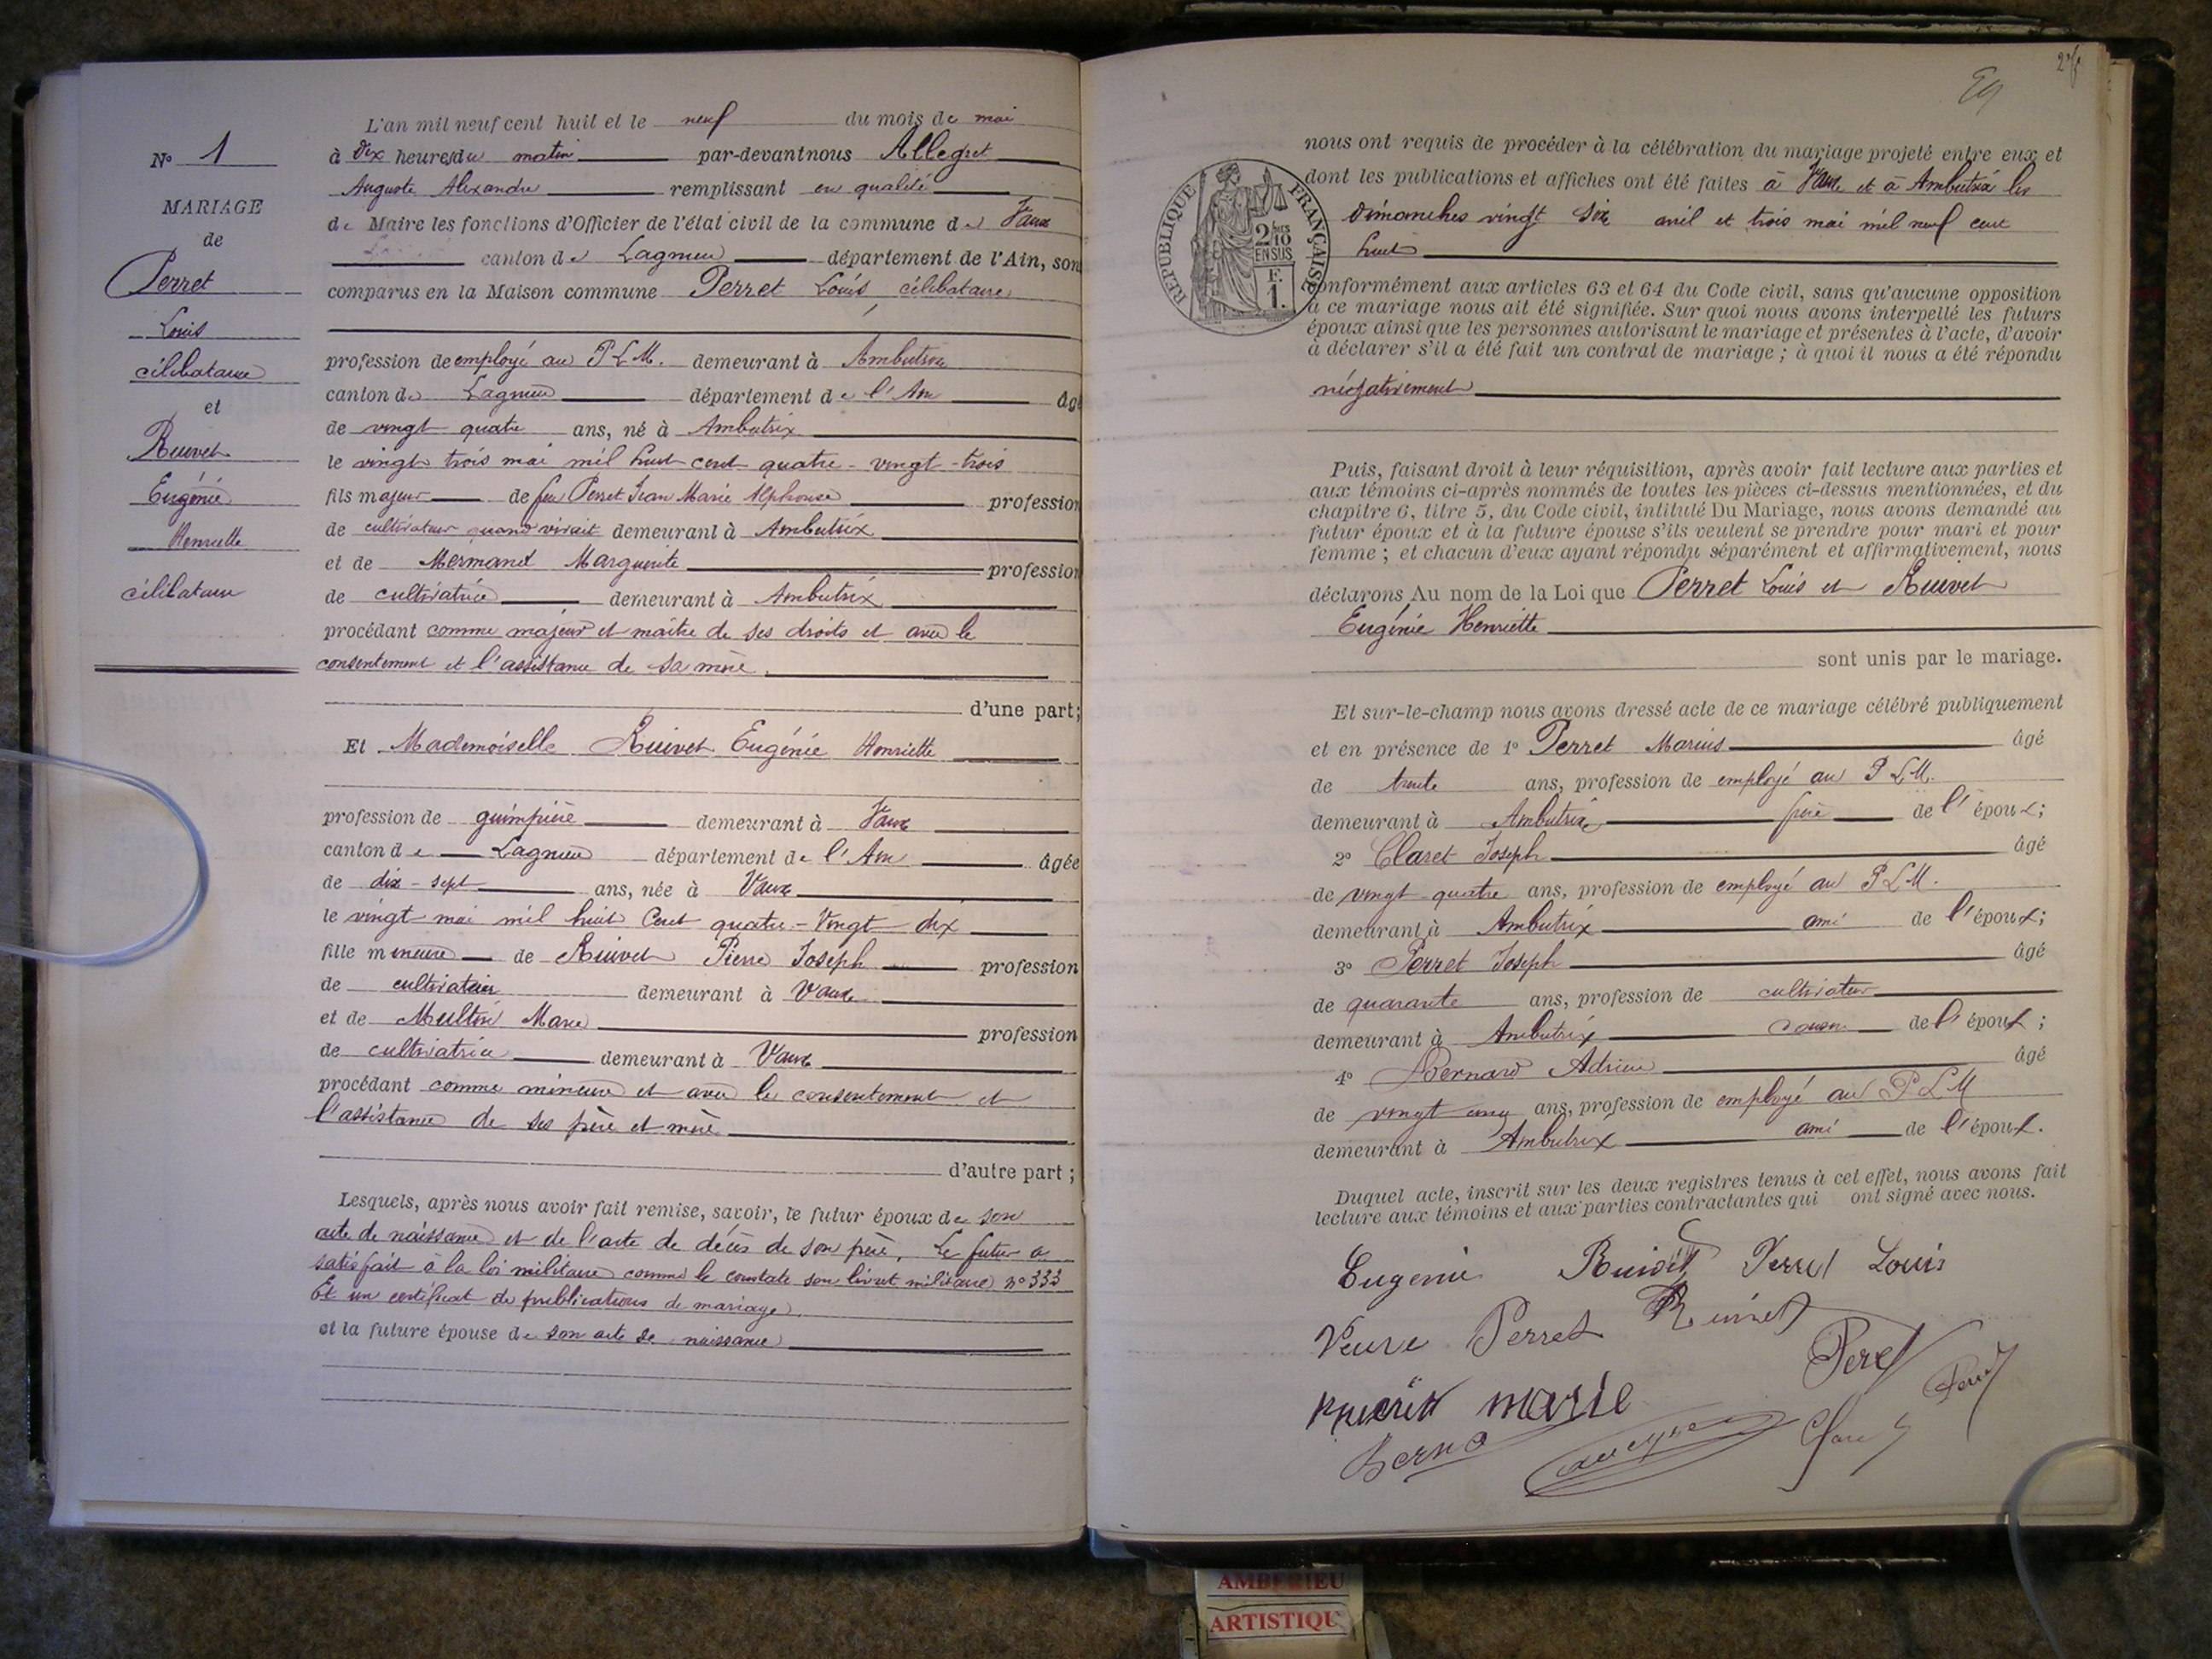 N° 1
MARIAGE
de
Perret
Louis
célibataire
et
Ruivet
Eugénie
Henriette
célibataire
L'an mil neuf cent huit et le neuf du mois de mai
à dix heures du matin par-devant nous Allegret
Auguste Alexandre remplissant en qualité
de Maire les fonctions d'Officier de l'état civil de la commune de Vaux
canton de Lagnieu département de l'Ain, son
comparus en la Maison commune Perret Louis célibataire
profession de employé au P L M. demeurant à Ambutrix
canton de Lagnieu département de l'Ain âgé
de vingt quatre ans, né à Ambutrix
le vingt trois mai mil huit cent quatre-vingt-trois
fils majeur de feu Perret Jean Marie Alphonse profession
de cultivateur quand vivait demeurant à Ambutrix
et de Mermand Marguerite profession
de cultivatrice demeurant à Ambutrix
procédant comme majeur et maître de ses droits et avec le
consentement et l'assistance de sa mère.
d'une part;
Et Mademoiselle Ruivet Eugénie Henriette
profession de guimpière demeurant à Vaux
canton de Lagnieu département de l'Ain âgée
de dix-sept ans, née à Vaux
le vingt mai mil huit cent quatre-vingt dix
fille mineure de Ruivet Pierre Joseph profession
de cultivateur demeurant à Vaux
et de Marie profession
de cultivatrice demeurant à Vaux
procédant comme mineure et avec le consentement et
l'assistance de ses père et mère
d'autre part ;
Lesquels, après nous avoir fait remise, savoir, le futur époux de son
acte de naissance et de l'acte de décès de son père. Le futur a
satisfait à la loi militaire comme le constate son livret militaire n° 333
Et un certificat de publications de mariage.
et la future épouse de son acte de naissance
RÉPUBLIQUE FRANÇAISE
2/10 EN SUS
F.
1.
nous ont requis de procéder à la célébration du mariage projeté entre eux et
dont les publications et affiches ont été faites à Vaux et à Ambutrix les
dimanches vingt six avril et trois mai mil neuf cent
huit
Conformément aux articles 63 et 64 du Code civil, sans qu'aucune opposition
à ce mariage nous ait été signifiée. Sur quoi nous avons interpellé les futurs
époux ainsi que les personnes autorisant le mariage et présentes à l'acte, d'avoir
à déclarer s'il a été fait un contrat de mariage ; à quoi il nous a été répondu
négativement
Puis, faisant droit à leur réquisition, après avoir fait lecture aux parties et
aux témoins ci-après nommés de toutes les pièces ci-dessus mentionnées, et du
chapitre 6, titre 5, du Code civil, intitulé Du Mariage, nous avons demandé au
futur époux et à la future épouse s'ils veulent se prendre pour mari et pour
femme ; et chacun d'eux ayant répondu séparément et affirmativement, nous
déclarons Au nom de la Loi que Perret Louis et Ruivet
Eugénie Henriette
sont unis par le mariage.
Et sur-le-champ nous avons dressé acte de ce mariage célébré publiquement
et en présence de 1° Perret Marius âgé
de trente ans, profession de employé au P L M.
demeurant à Ambutrix frère de l'époux;
2° Claret Joseph âgé
de vingt-quatre ans, profession de employé au P L M.
demeurant à Ambutrix ami de l'époux;
3° Perret Joseph âgé
de quarante ans, profession de cultivateur
demeurant à Ambutrix cousin de l'époux ;
4° Bernard Adrien âgé
de vingt cinq ans, profession de employé au P L M
demeurant à Ambutrix ami de l'époux.
Duquel acte, inscrit sur les deux registres tenus à cet effet, nous avons fait
lecture aux témoins et aux parties contractantes qui ont signé avec nous.
Eugenie Ruivet Perret Louis
Veuve Perret Ruivet
Perret
marie
AMBERIEU
ARTISTIQU